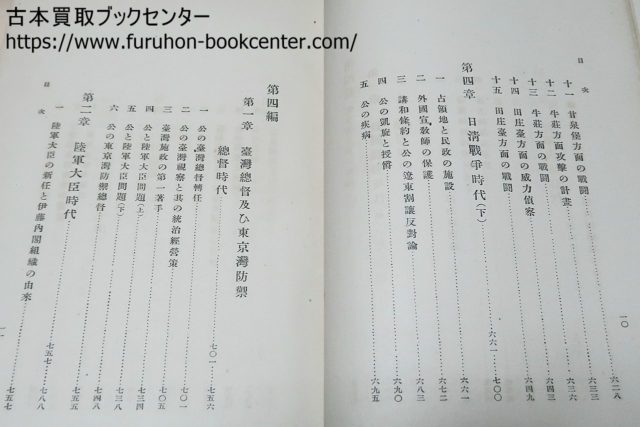 古本買取ブックセンター
https://www.furuhon-bookcenter.com/
目次
一〇
十一 甘泉堡方面の戰鬪 六二八
十二 牛莊方面攻擊の計畫 六三三
十三 牛莊方面の戰鬪 六三六
十四 田庄臺方面の威力偵察 六四三
十五 田庄臺方面の戰鬪 六四九
第四章 日清戰爭時代(下) 六六一 七〇〇
一 占領地と民政の施設 六六一
二 外國宣敎師の保護 六八三
三 講和條約と公の遼東割讓反對論 六八六
四 公の凱旋と授爵 六九〇
五 公の疾病 六九五
第四編
第一章 臺灣總督及ひ東京灣防禦
總督時代 七〇一 七五六
一 公の臺灣總督轉任 七〇一
二 公の臺灣視察と其の統治經營策
三 臺灣施政の第一著手
四 公と陸軍大臣問題(上) 七三四
五 公と陸軍大臣問題(下) 七三八
六 公の東京灣防禦總督 七四八
第二章 陸軍大臣時代 七五五
一 陸軍大臣の新任と伊藤內閣組織の由來 七五七
目次